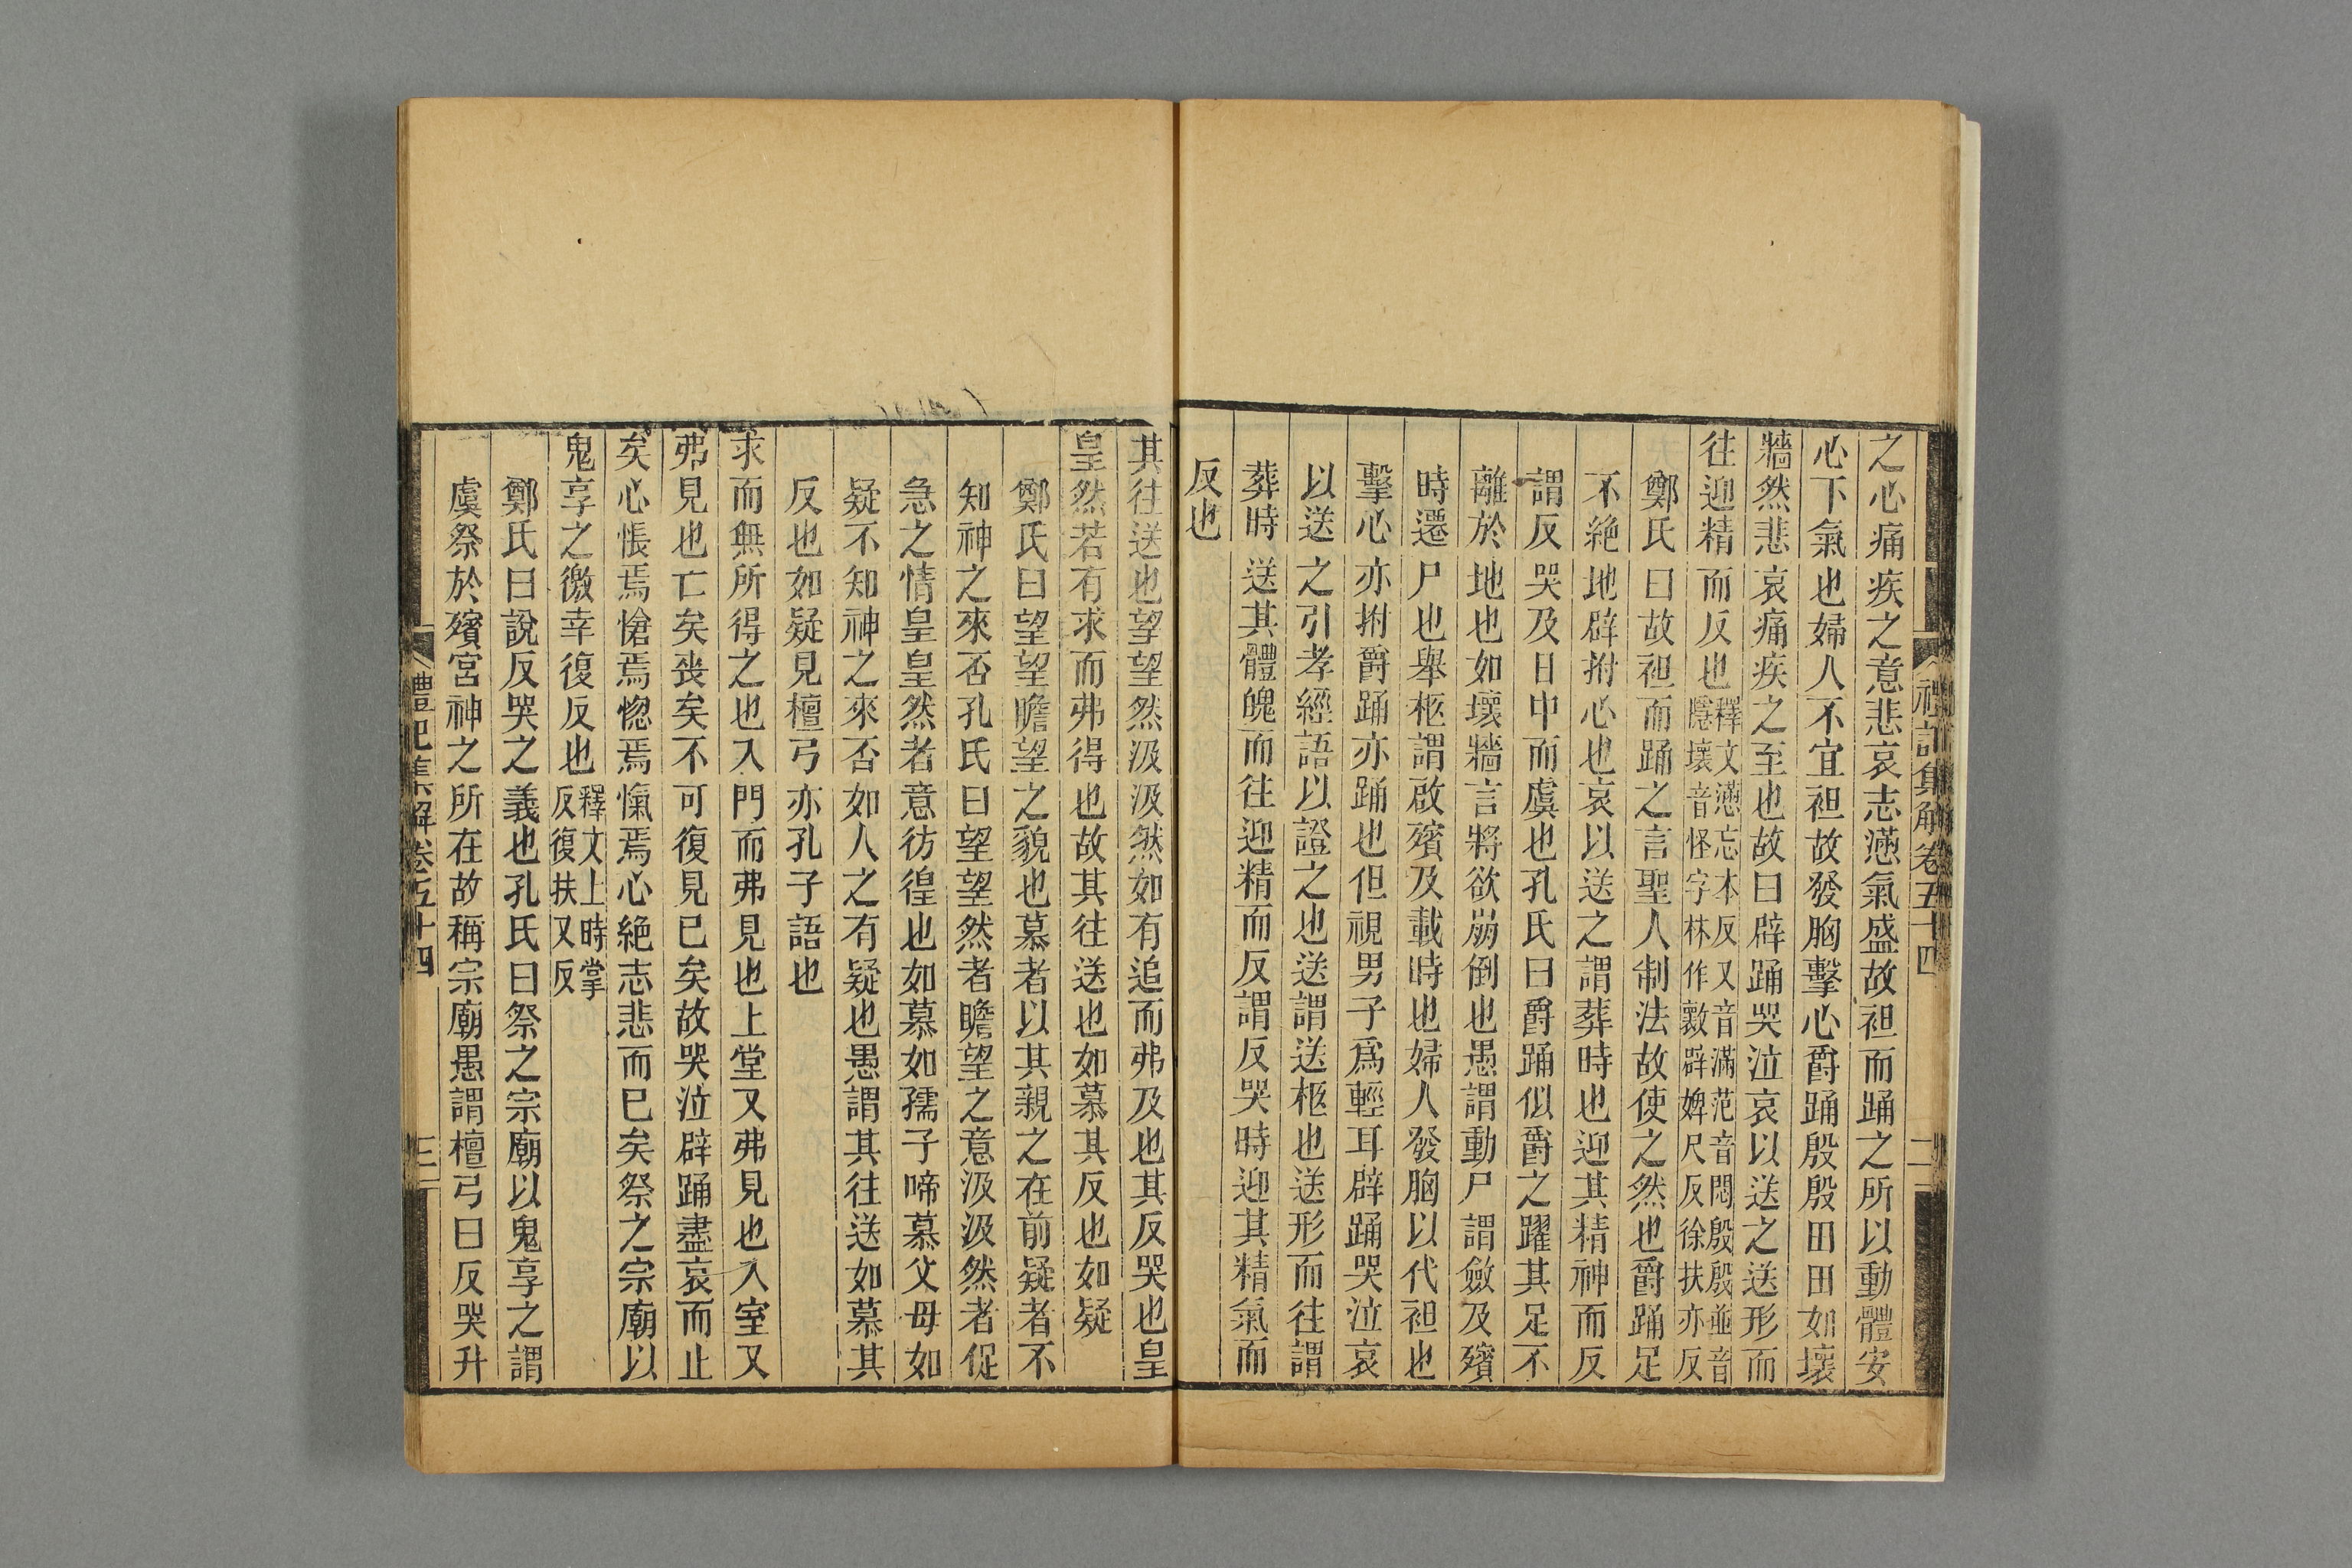 禮記集解卷五十四
二
之心痛疾之意悲哀志懣氣盛故袒而踊之所以動體安
心下氣也婦人不宜袒故發胸擊心爵踊殷殷田田如壞
牆然悲哀痛疾之至也故曰辟踊哭泣哀以送之送形而
往迎精而反也釋文懣忘本反又音滿范音悶殷殷並音
隱壞音怪字林作𡐦辟婢尺反徐扶亦反
鄭氏曰故袒而踊之言聖人制法故使之然也爵踊足
不絶地辟拊心也哀以送之謂葬時也迎其精神而反
謂反哭及日中而虞也孔氏曰爵踊似爵之躍其足不
離於地也如壞牆言將欲崩倒也愚謂動尸謂斂及殯
時遷尸也舉柩謂啟殯及載時也婦人發胸以代袒也
擊心亦拊爵踊亦踊也但視男子爲輕耳辟踊哭泣哀
以送之引孝經語以證之也送謂送柩也送形而往謂
葬時送其體魄而往迎精而反謂反哭時迎其精氣而
反也
其往送也望望然汲汲然如有追而弗及也其反哭也皇
皇然若有求而弗得也故其往送也如慕其反也如疑
鄭氏曰望望瞻望之貌也慕者以其親之在前疑者不
知神之來否孔氏曰望望然者瞻望之意汲汲然者促
急之情皇皇然者意彷徨也如慕如孺子啼慕父母如
疑不知神之來否如人之有疑也愚謂其往送如慕其
反也如疑見檀弓亦孔子語也
求而無所得之也入門而弗見也上堂又弗見也入室又
弗見也亡矣喪矣不可復見已矣故哭泣辟踊盡哀而止
矣心悵焉愴焉惚焉愾焉心絶志悲而已矣祭之宗廟以
鬼享之徼幸復反也釋文上時掌
反復扶又反
鄭氏曰說反哭之義也孔氏曰祭之宗廟以鬼享之謂
虞祭於殯宮神之所在故稱宗廟愚謂檀弓曰反哭升
禮記集解卷五十四
三